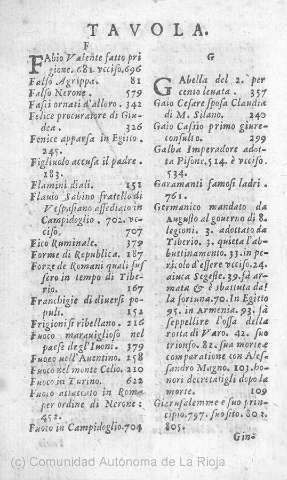 TAVOLA.
F
FAbio Valente fatto pri
gione. 681. vcciso. 696
Falso Agrippa. 81
Falso Nerone. 579
Fasci ornati d'alloro. 342
Felice procuratore di Giu-
dea. 326
Fenice apparsa in Egitto.
245.
Figliuolo accusa il padre.
183.
Flamini diali. 151
Flauio Sabino fratello di
Vespasiano assediato in
Campidoglio. 702. vc-
ciso. 707
Fico Ruminale. 379
Forme di Republica. 187
Forze de Romani quali fus
sero in tempo di Tibe-
rio. 167
Franchigie di diuersi po-
puli. 152
Frigioni si ribellano. 216
Fuoco marauiglioso nel
paese degl'Iuoni. 379
Fuoco nell'Auentino. 258
Fuoco nel monte Celio. 210
Fuoco in Turino. 622
Fuoco attaccato in Roma
per ordine di Nerone:
452.
Fuoco in Campidoglio. 704
G
GAbella del 2. per
cento leuata. 357
Gaio Cesare sposa Claudia
di M. Silano. 240
Gaio Cassio primo giure-
consulto. 299
Galba Imperadore adot-
ta Pisone. 514. è vcciso.
534.
Garamanti famosi ladri.
761.
Germanico mandato da
Augusto al gouerno di 8.
legioni. 3. adottato da
Tiberio. 3. quieta l'ab-
buttinamento. 33. in pe-
ricolo d'essere vcciso. 24.
aiuta Segeste. 39. fà ar-
mata & è sbattuto dal
la fortuna. 70. In Egitto
95. in Armenia. 93. fà
seppellire l'ossa della
rotta di Varo. 42. suo
trionfo. 82. sua morte e
comparatione con Ales-
sandro Magno. 103. ho-
nori decretatigli dopo la
morte. 109
Gierusalemme e suo prin-
cipio. 797. suo sito. 802.
805.
Gin-
(c) Comunidad Autónoma de La Rioja